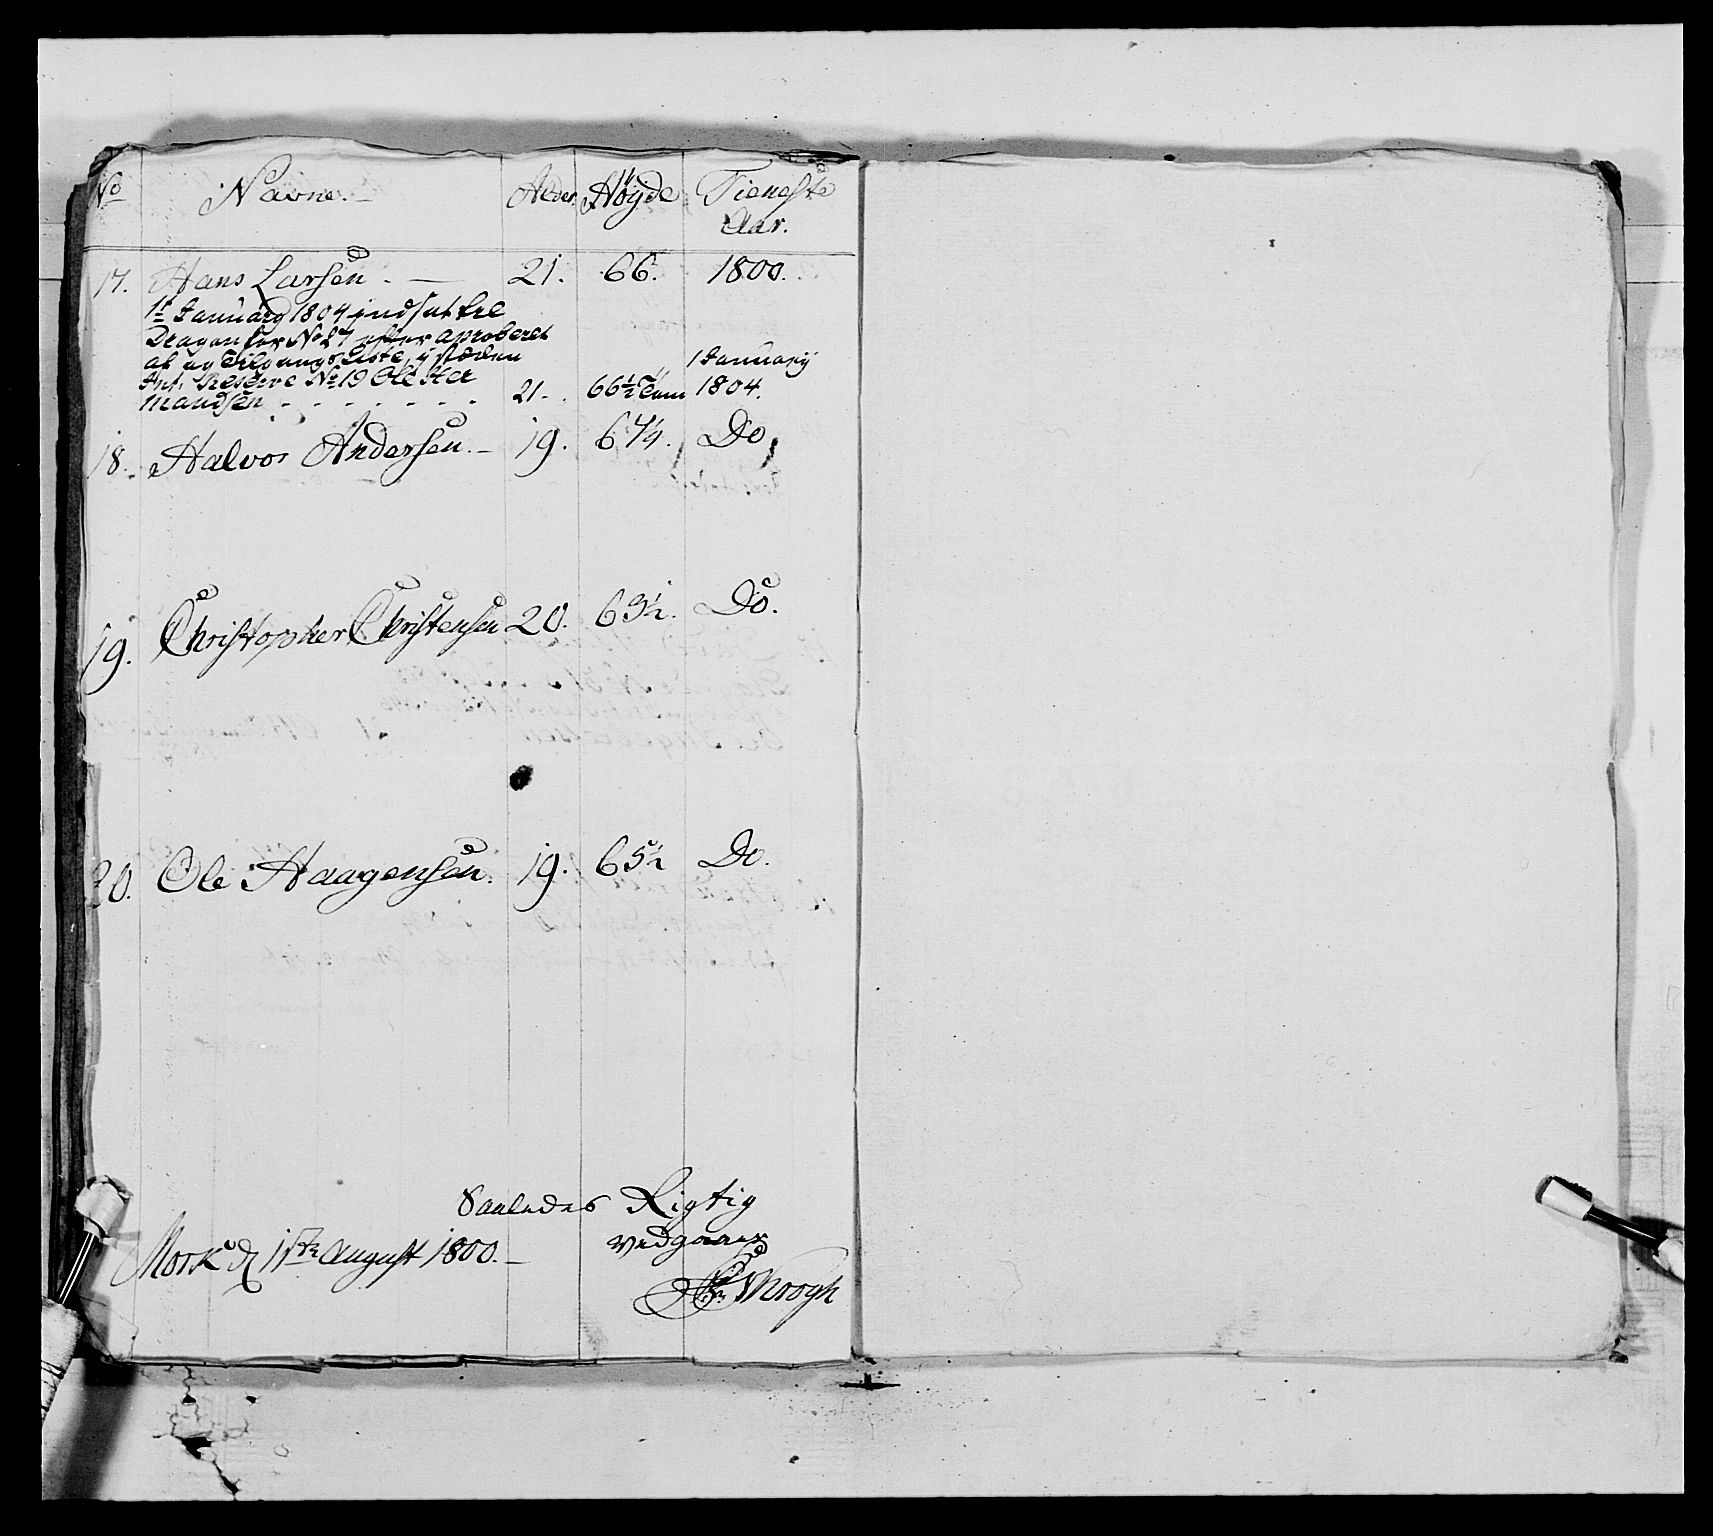 No Navne. Alder Höyde Tieneste Aar.
17. Hans Larsen. — 21. 66. 1800.
1te Januarij 1804 indsat til
Dragon for No 27 efter aproberet
af og Tilgangs Liste, i stæden
Inf. Reserve No 19 Ole Her
mandsen - - - - - - - 21. 66½ Tom 1 Januarij 1804.
18. Halvor Andersen. 19. 67¼. Do
19. Christopher Christensen 20. 63½. Do.
20. Ole Haagensen. 19. 65½ Do.
Saaledes Rigtig
vedgaaer
Mork d 15te August 1800. —